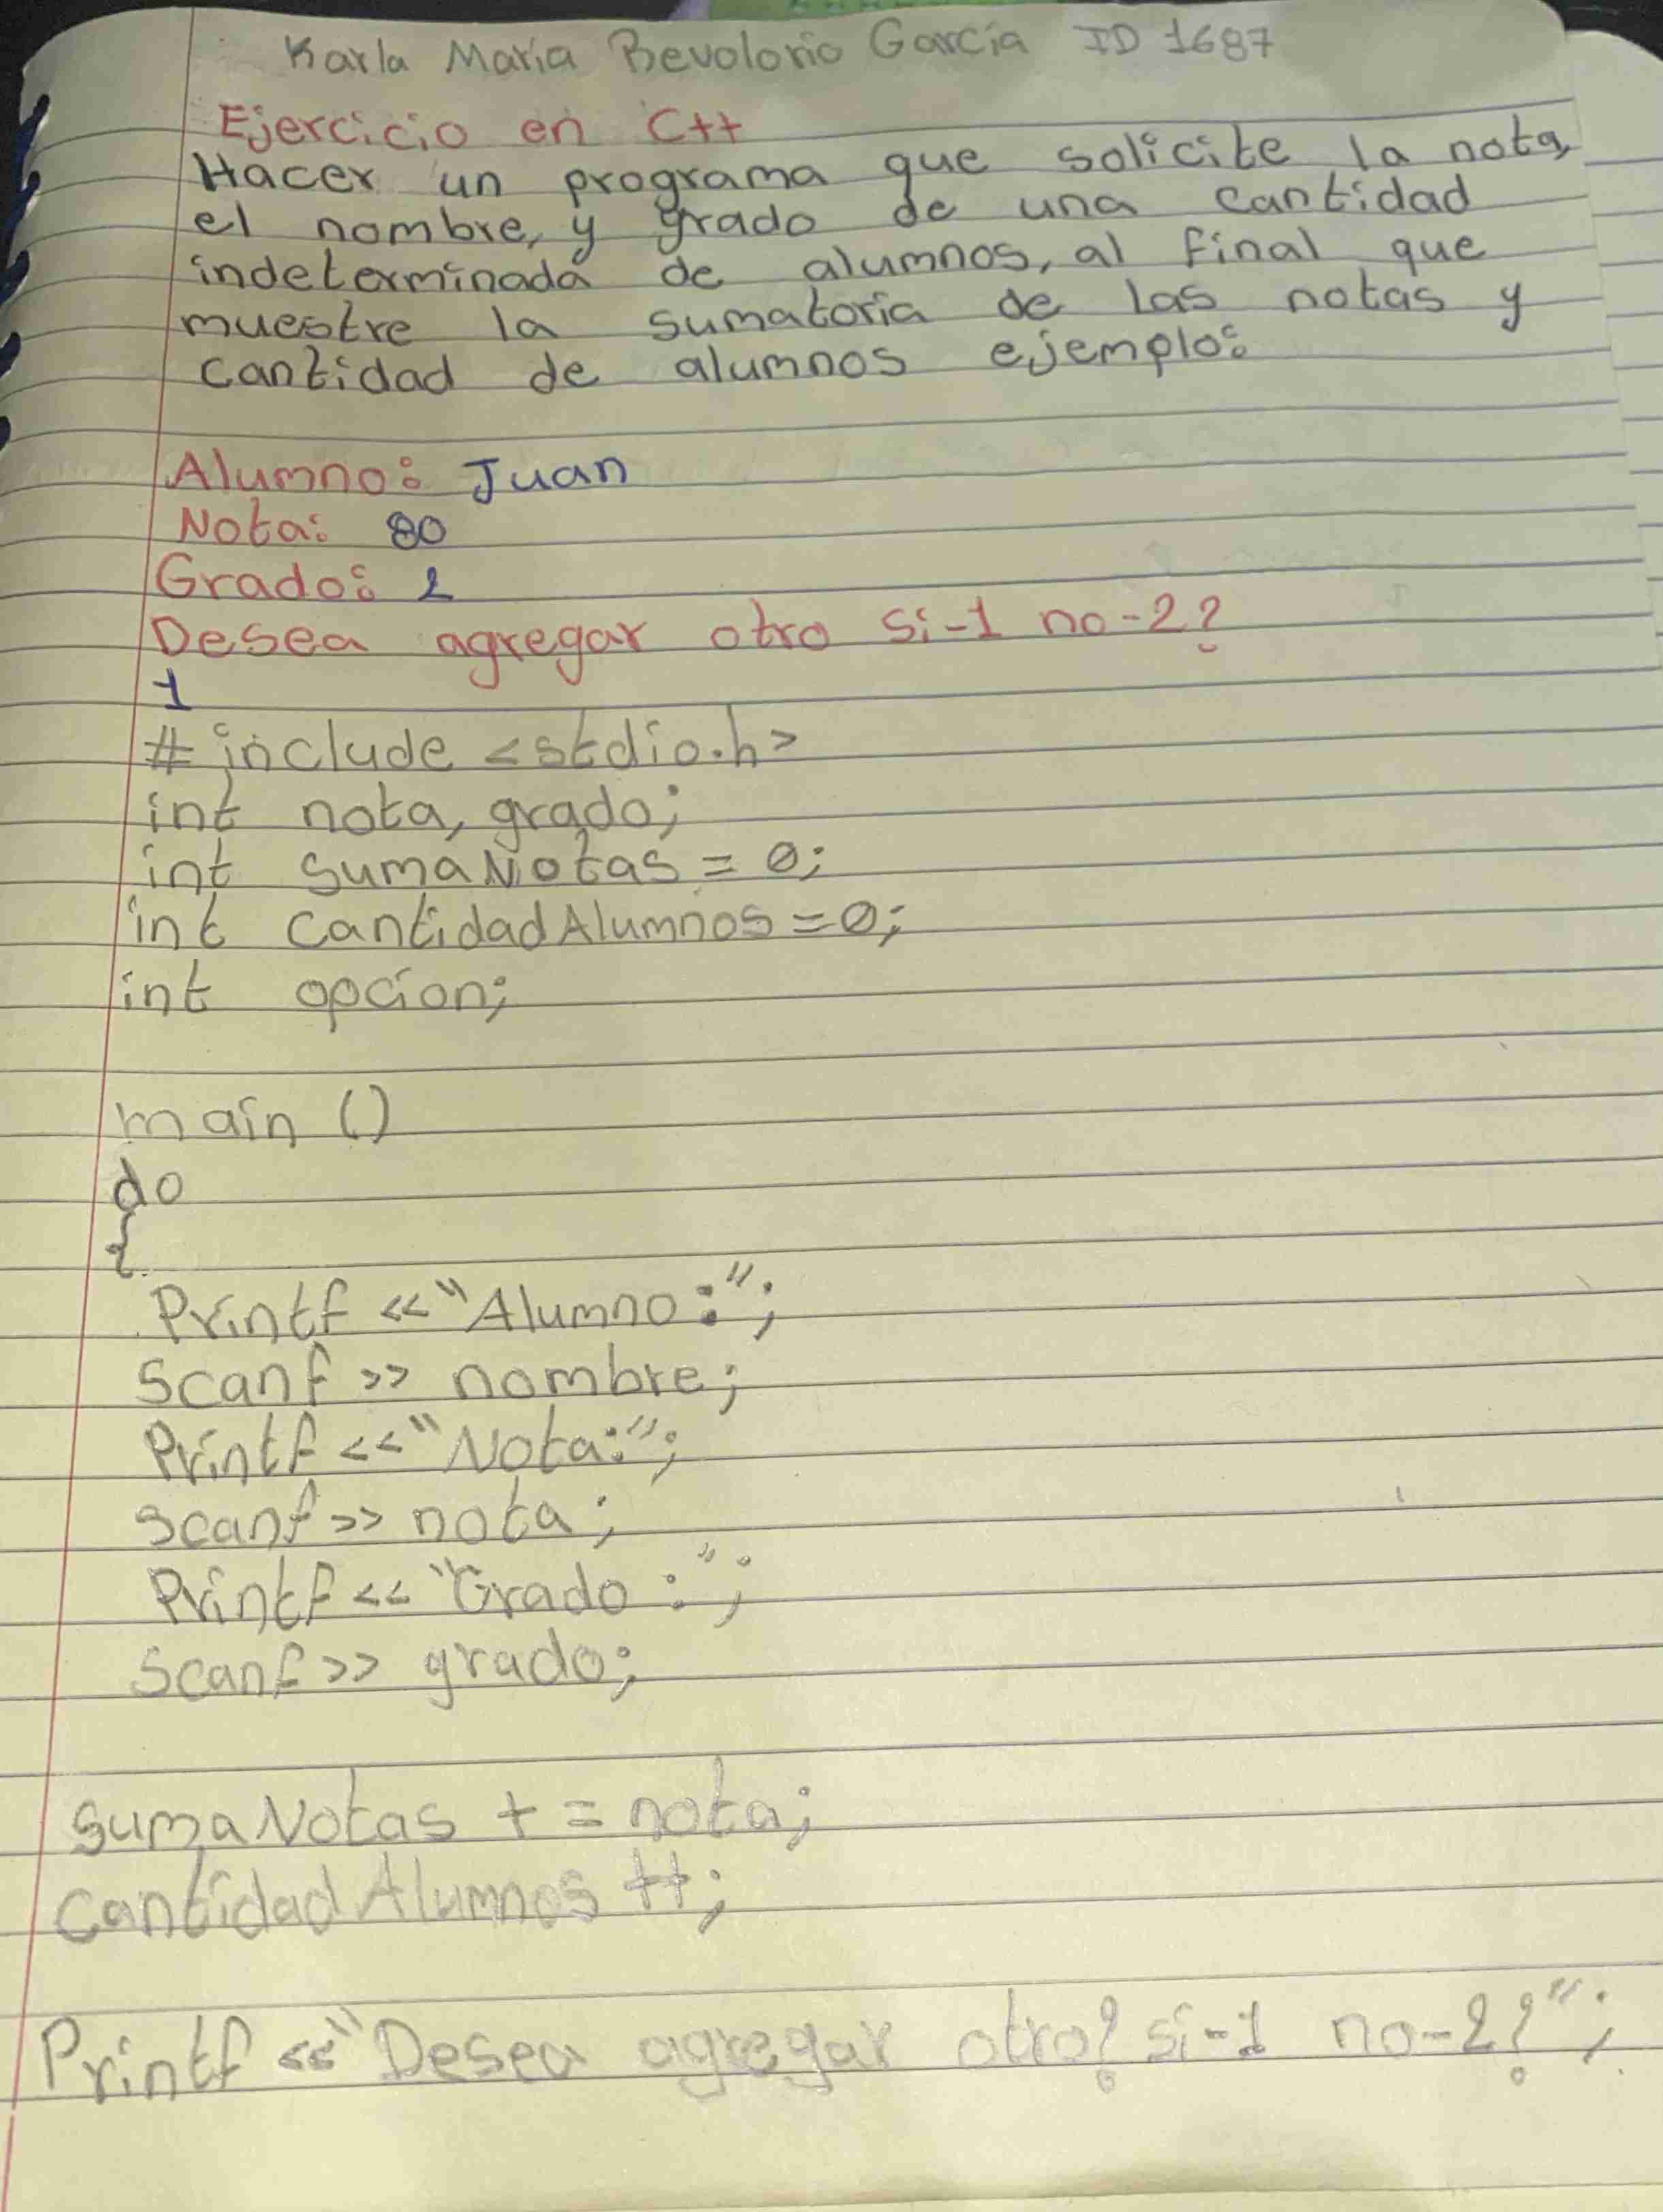 Karla María Bevolorio García ID 1687
Ejercicio en C++
Hacer un programa que solicite la nota,
el nombre, y grado de una cantidad
indeterminada de alumnos, al final que
muestre la sumatoria de las notas y
cantidad de alumnos ejemplo:
Alumno: Juan
Nota: 80
Grado: 2
Desea agregar otro si-1 no-2?
1
# include <stdio.h>
int nota, grado;
int sumaNotas = 0;
int cantidadAlumnos = 0;
int opcion;
main ()
do
{
Printf << "Alumno:";
Scanf >> nombre;
Printf << "Nota:";
Scanf >> nota;
Printf << "Grado :";
Scanf >> grado;
sumaNotas + = nota;
cantidadAlumnos ++;
Printf << "Desea agregar otro? si-1 no-2?";